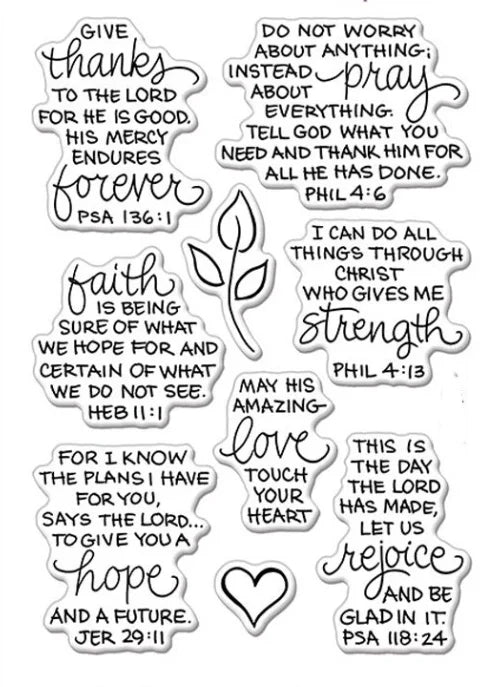 GIVE
thanks
TO THE LORD
FOR HE IS GOOD.
HIS MERCY
ENDURES
forever
PSA 136:1
DO NOT WORRY
ABOUT ANYTHING;
INSTEAD pray
ABOUT
EVERYTHING.
TELL GOD WHAT YOU
NEED AND THANK HIM FOR
ALL HE HAS DONE.
PHIL 4:6
faith
IS BEING
SURE OF WHAT
WE HOPE FOR AND
CERTAIN OF WHAT
WE DO NOT SEE.
HEB 11:1
I CAN DO ALL
THINGS THROUGH
CHRIST
WHO GIVES ME
strength
PHIL 4:13
MAY HIS
AMAZING
love
TOUCH
YOUR
HEART
FOR I KNOW
THE PLANS I HAVE
FOR YOU,
SAYS THE LORD...
TO GIVE YOU A
hope
AND A FUTURE.
JER 29:11
THIS IS
THE DAY
THE LORD
HAS MADE,
LET US
rejoice
AND BE
GLAD IN IT.
PSA 118:24